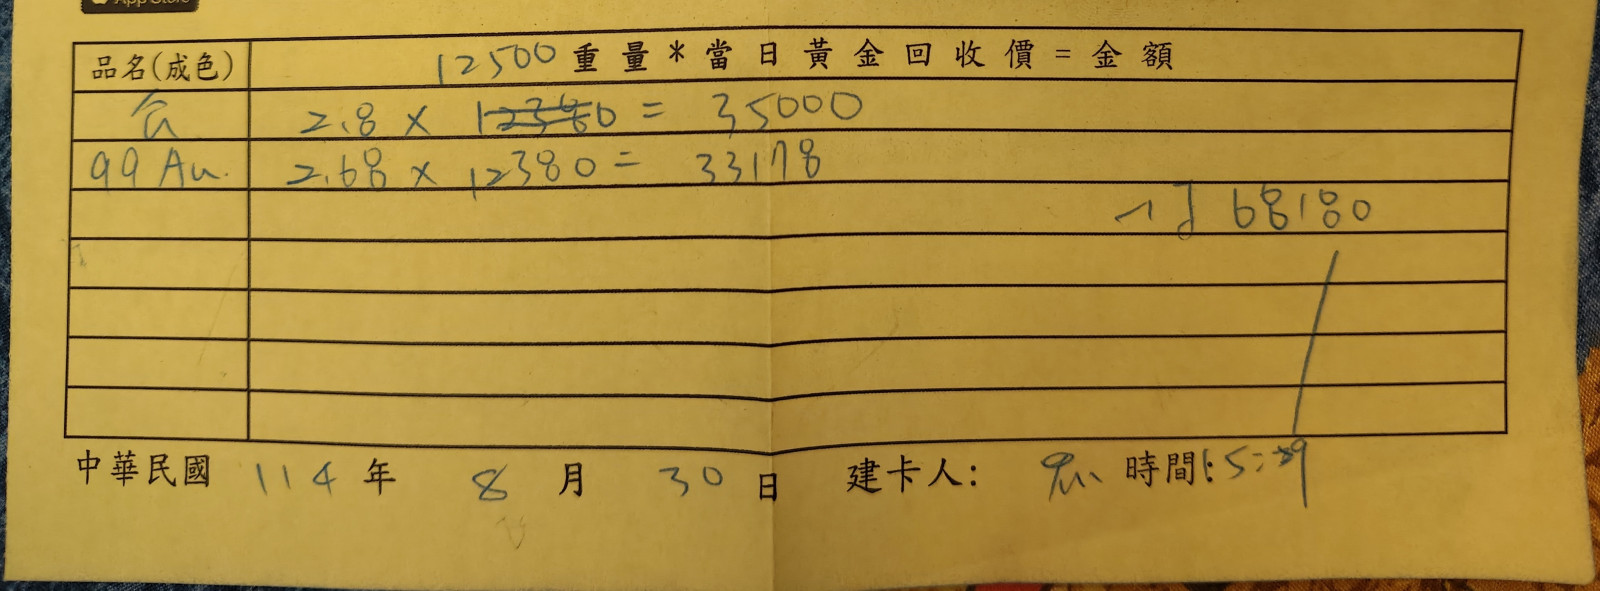 App Store
品名(成色) 12500 重量*當日黃金回收價=金額
2.8 × 12380 = 35000
99 Au. 2.68 × 12380 = 33178
68180
中華民國 114 年 8 月 30 日 建卡人: 時間: